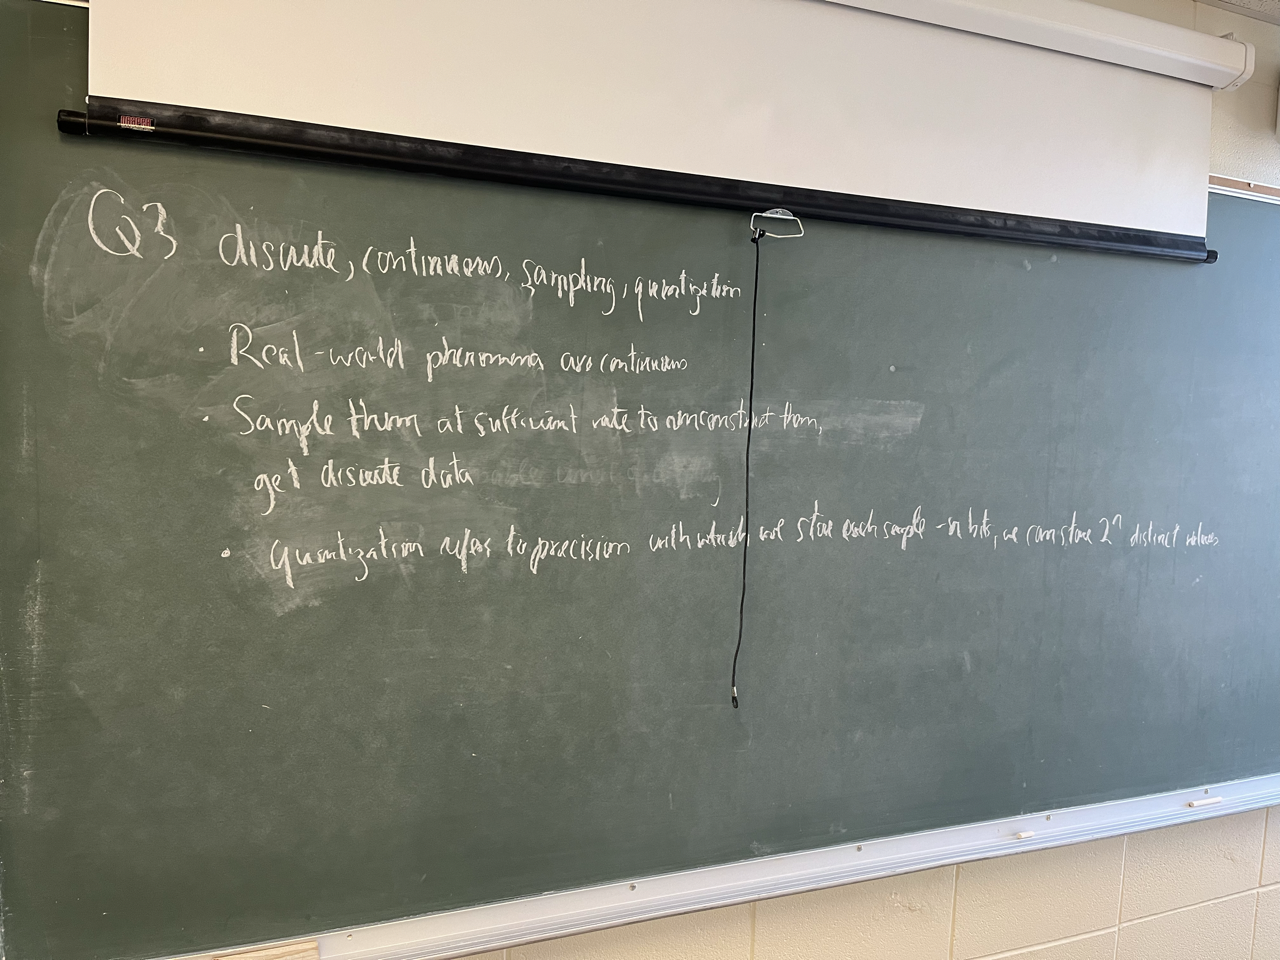 Q3 discrete, continuous, sampling, quantization
• Real-world phenomena are continuous
• Sample them at sufficient rate to reconstruct them,
get discrete data
• quantization refers to precision with which we store each sample - n bits, we can store 2^n distinct values